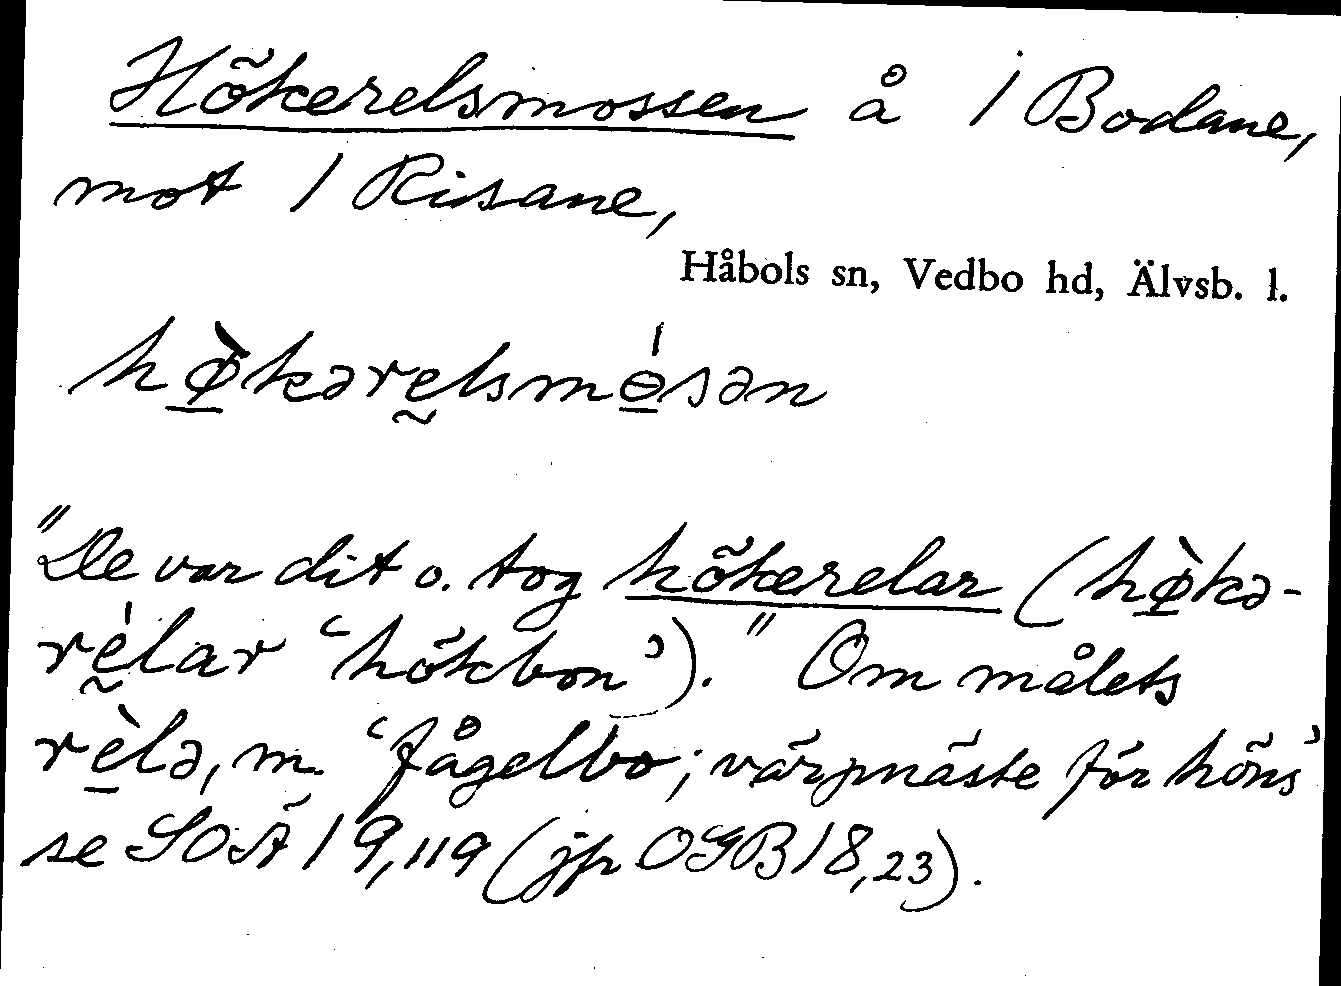 Hökerelsmossen å 1 Bodane,
mot 1 Risane,
Håbols sn, Vedbo hd, Älvsb. l.
hø̀kərelsmɵ́sən
"De var dit o. tog hökerelar (hø̀kə-
rèlar ‘hökbon’)." Om målets
rèlə, m. ‘fågelbo; värpnäste för höns’
se SOÄ 19,119 (jfr OGB 18,23).